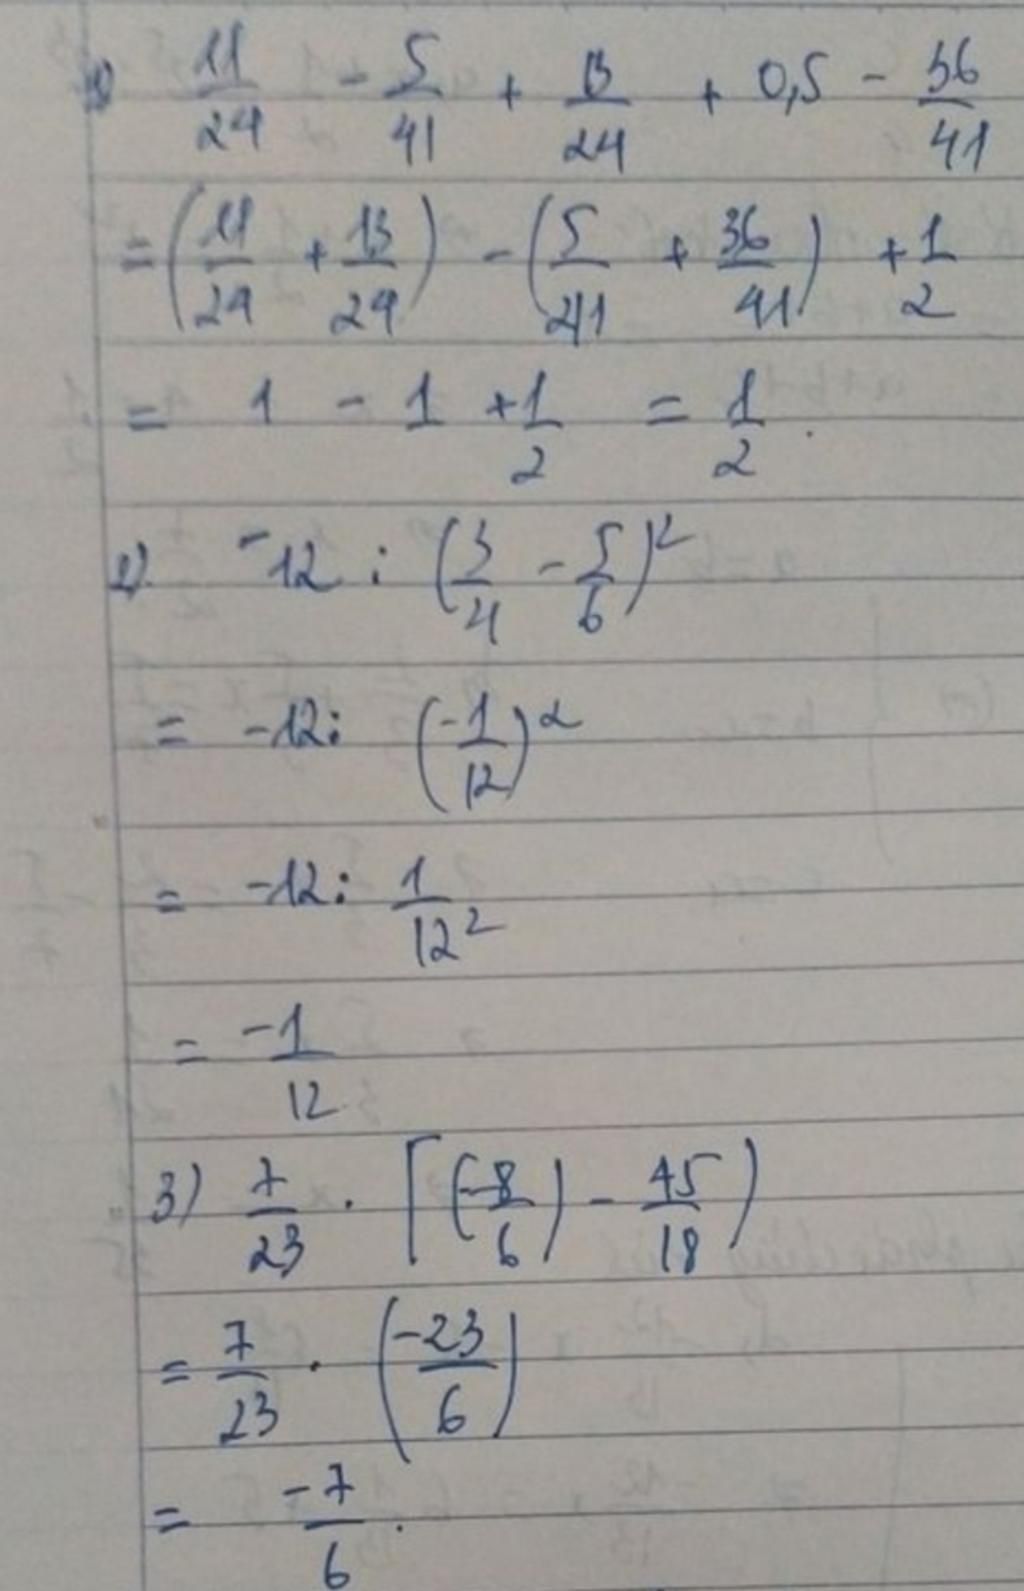 1) 11/24 - 5/41 + 13/24 + 0,5 - 36/41
= (11/24 + 13/24) - (5/41 + 36/41) + 1/2
= 1 - 1 + 1/2 = 1/2.
2) -12 : (3/4 - 5/6)²
= -12 : (-1/12)²
= -12 : 1/12²
= -1/12
3) 7/23 . [(-8/6) - 45/18)
= 7/23 . (-23/6)
= -7/6.